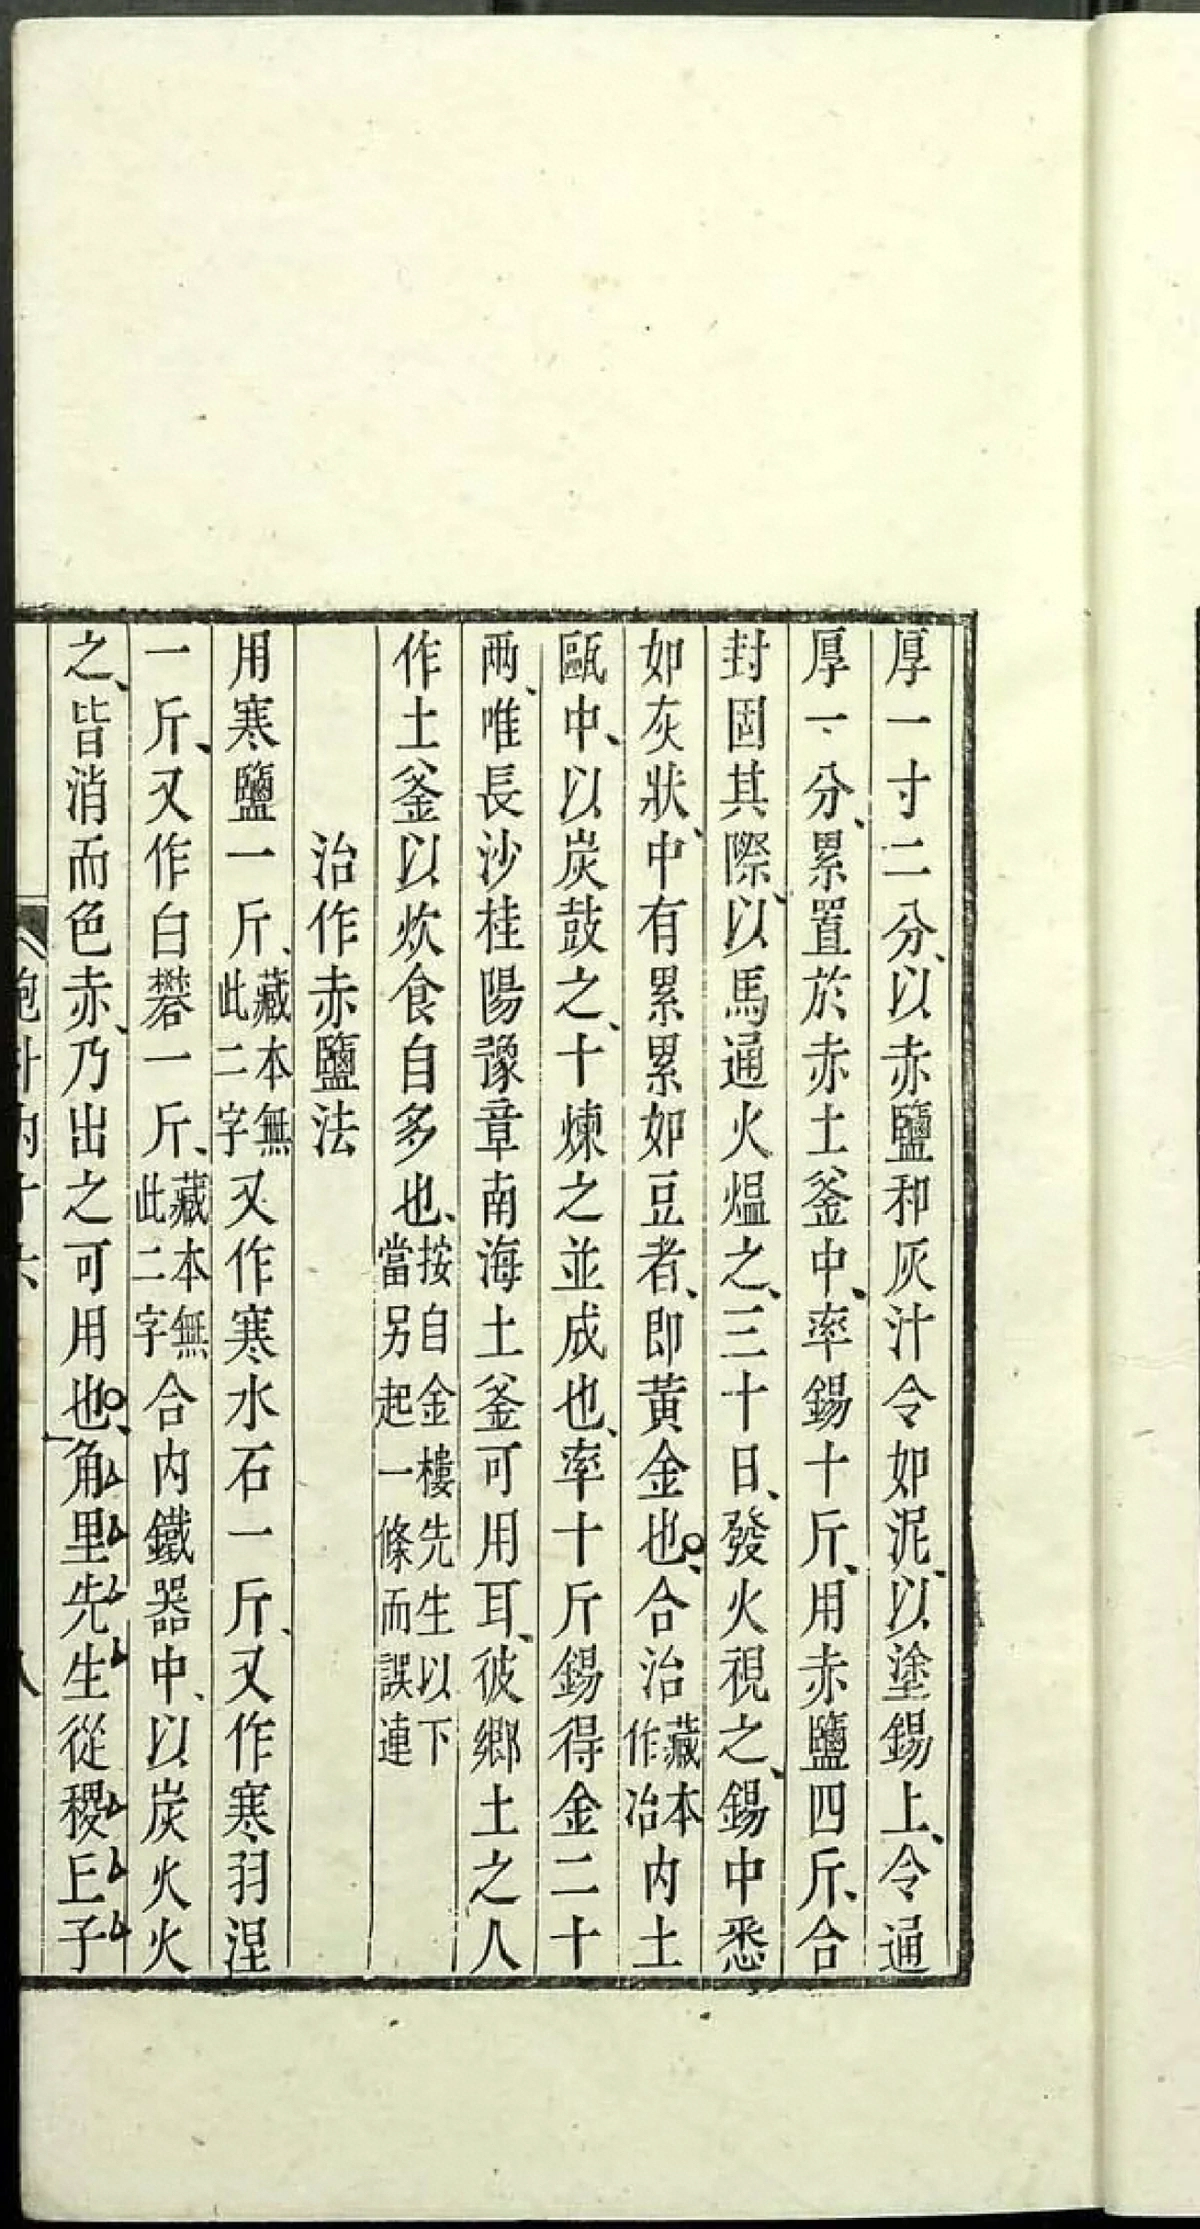 厚一寸二分、以赤鹽和灰汁令如泥、以塗錫上、令通
厚一分、累置於赤土釜中、率錫十斤、用赤鹽四斤、合
封固其際、以馬通火熅之、三十日、發火視之、錫中悉
如灰狀、中有累累如豆者、即黃金也。合治藏本作冶內土
甌中、以炭鼓之、十煉之並成也、率十斤錫得金二十
兩、唯長沙桂陽豫章南海土釜可用耳、彼鄉土之人
作土釜以炊食自多也、按自金樓先生以下當另起一條而誤連
治作赤鹽法
用寒鹽一斤、藏本無此二字又作寒水石一斤、又作寒羽涅
一斤、又作白礬一斤、藏本無此二字合內鐵器中、以炭火火
之、皆消而色赤、乃出之可用也。角里先生從稷丘子
抱朴內十六
八